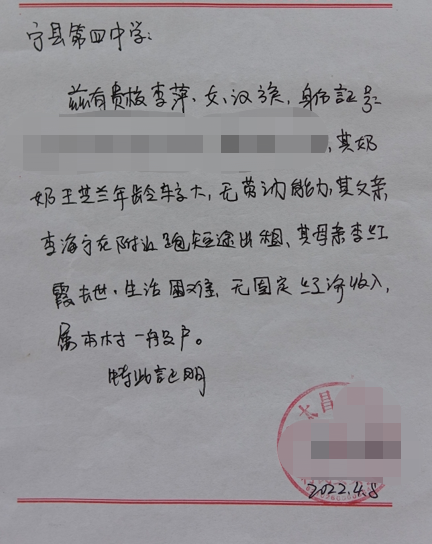 宁县第四中学：
兹有贵校李萍、女、汉族，身份证号：
，其奶
奶王芝兰年龄较大，无劳动能力，其父亲
李海宁在附近跑短途出租、其母亲李红
霞去世，生活困难，无固定经济收入，
属本村一般户。
特此证明
太昌
2022.4.8